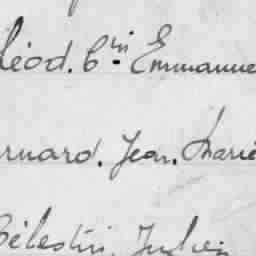 Léod. Cⁱⁿ Emmanue
ernard. Jean. Marie
Célestin. Julien